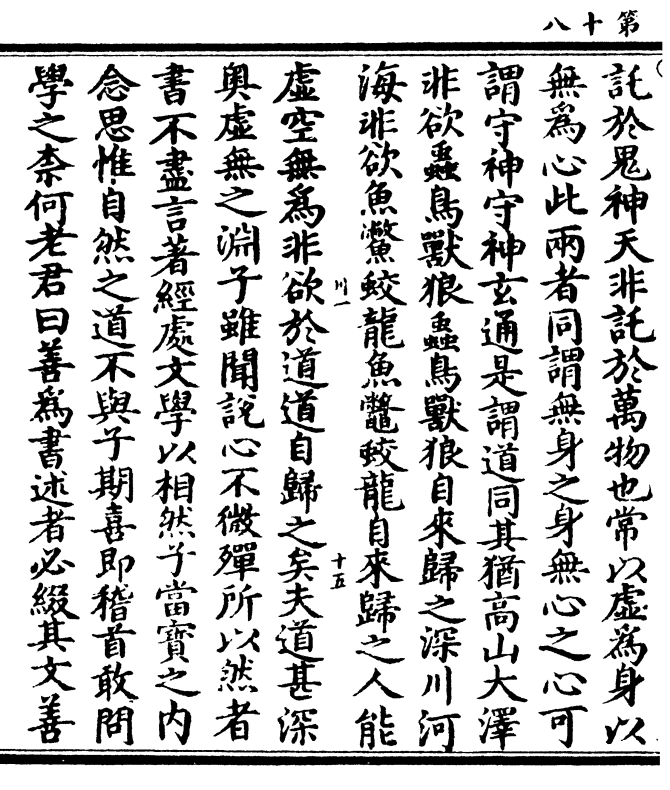 第十八
託於鬼神天非託於萬物也常以虛爲身以
無爲心此兩者同謂無身之身無心之心可
謂守神守神玄通是謂道同其猶高山大澤
非欲蟲鳥獸狼蟲鳥獸狼自來歸之深川河
海非欲魚鱉蛟龍魚鼈蛟龍自來歸之人能
虛空無爲非欲於道道自歸之矣夫道甚深
奧虛無之淵子雖聞說心不微殫所以然者
書不盡言著經處文學以相然子當寶之內
念思惟自然之道不與子期喜即稽首敢問
學之柰何老君曰善爲書述者必綴其文善
川一
十五